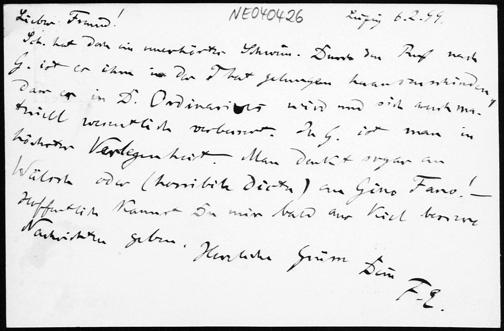 NE040426
Leipzig 6.2.99.
Lieber Freund!
Sch. hat doch ein unerhörtes Schwein. Durch den Ruf nach
G. ist es ihm in der That gelungen herauszuschinden,
dass er in D. Ordinarius wird und sich auch ma-
teriell wesentlich verbessert. In G. ist man in
höchster Verlegenheit. Man denkt sogar an
Wälsch oder (horribile dictu) an Gino Fano! —
Hoffentlich kannst Du mir bald aus Kiel bessere
Nachrichten geben.
Herzliche Grüsse Dein
F. E.